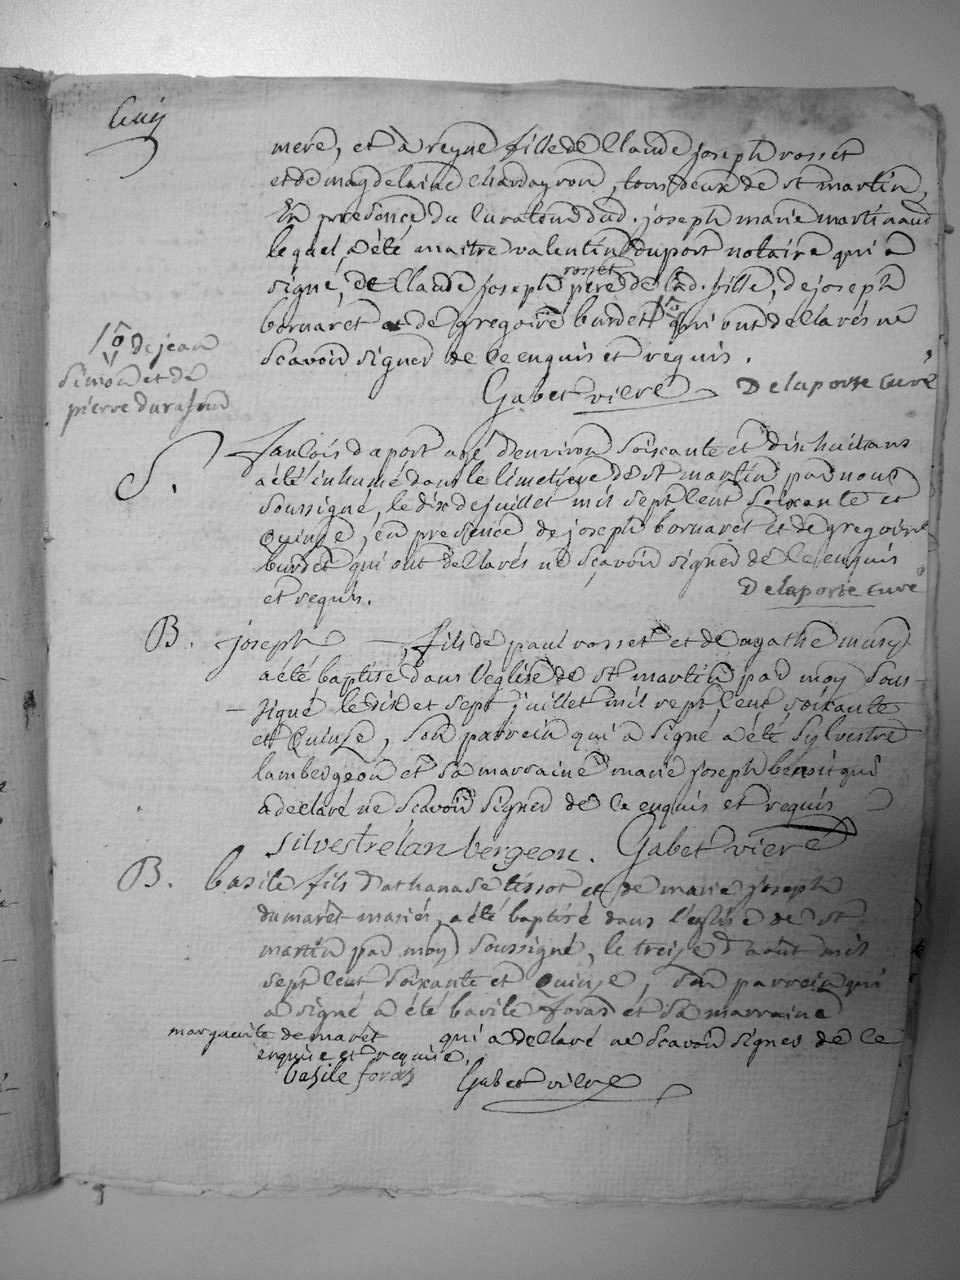 mere, et à reyne fille de Claude joseph rosset
et de magdelaine Chardayron, tous deux de st martin,
En presence du Curateur dud. joseph marie martinaud
lequel a été maitre valentin duport notaire qui a
signé, de Claude joseph rosset pere de lad. fille, de joseph
bornaret et de gregoire burdet qui ont dellarés ne
Scavoir signer de ce enquis et requis.
de jean
Simon et de
pierre durafour
Gabet vicre Delaporte Curé
S. francois daport agé d'environ soixante et dix huit ans
a été inhumé dans le Cimetiere de st martin par nous
soussigné, le dix de juillet mil sept Cent soixante et
Quinze, en presence de joseph bornaret et de gregoire
burdet qui ont dellarés ne sçavoir signer de ce enquis
et requis. Delaporte Curé
B. joseph, fils de paul rosset et de agathe musy
a été baptisé dans l'eglise de st martin par moy sous-
signé le dix et sept juillet mil sept Cent soixante
et Quinze, son parrein qui a signé a été Sylvestre
lambergeon et sa marraine marie joseph benoit qui
a declaré ne scavoir signer de ce enquis et requis
Silvestre lan bergeon. Gabet vicre
B. basile fils d'athanase tissot et de marie joseph
dumaret mariés, a été baptisé dans l'eglise de st
martin par moy soussigné, le treize d'aout mil
sept Cent soixante et Quinze, son parrein qui
a signé a été basile foras et sa marraine
marguerite demaret qui a dellaré ne scavoir signer de ce
enquise et requise.
basile foras Gabet vicre